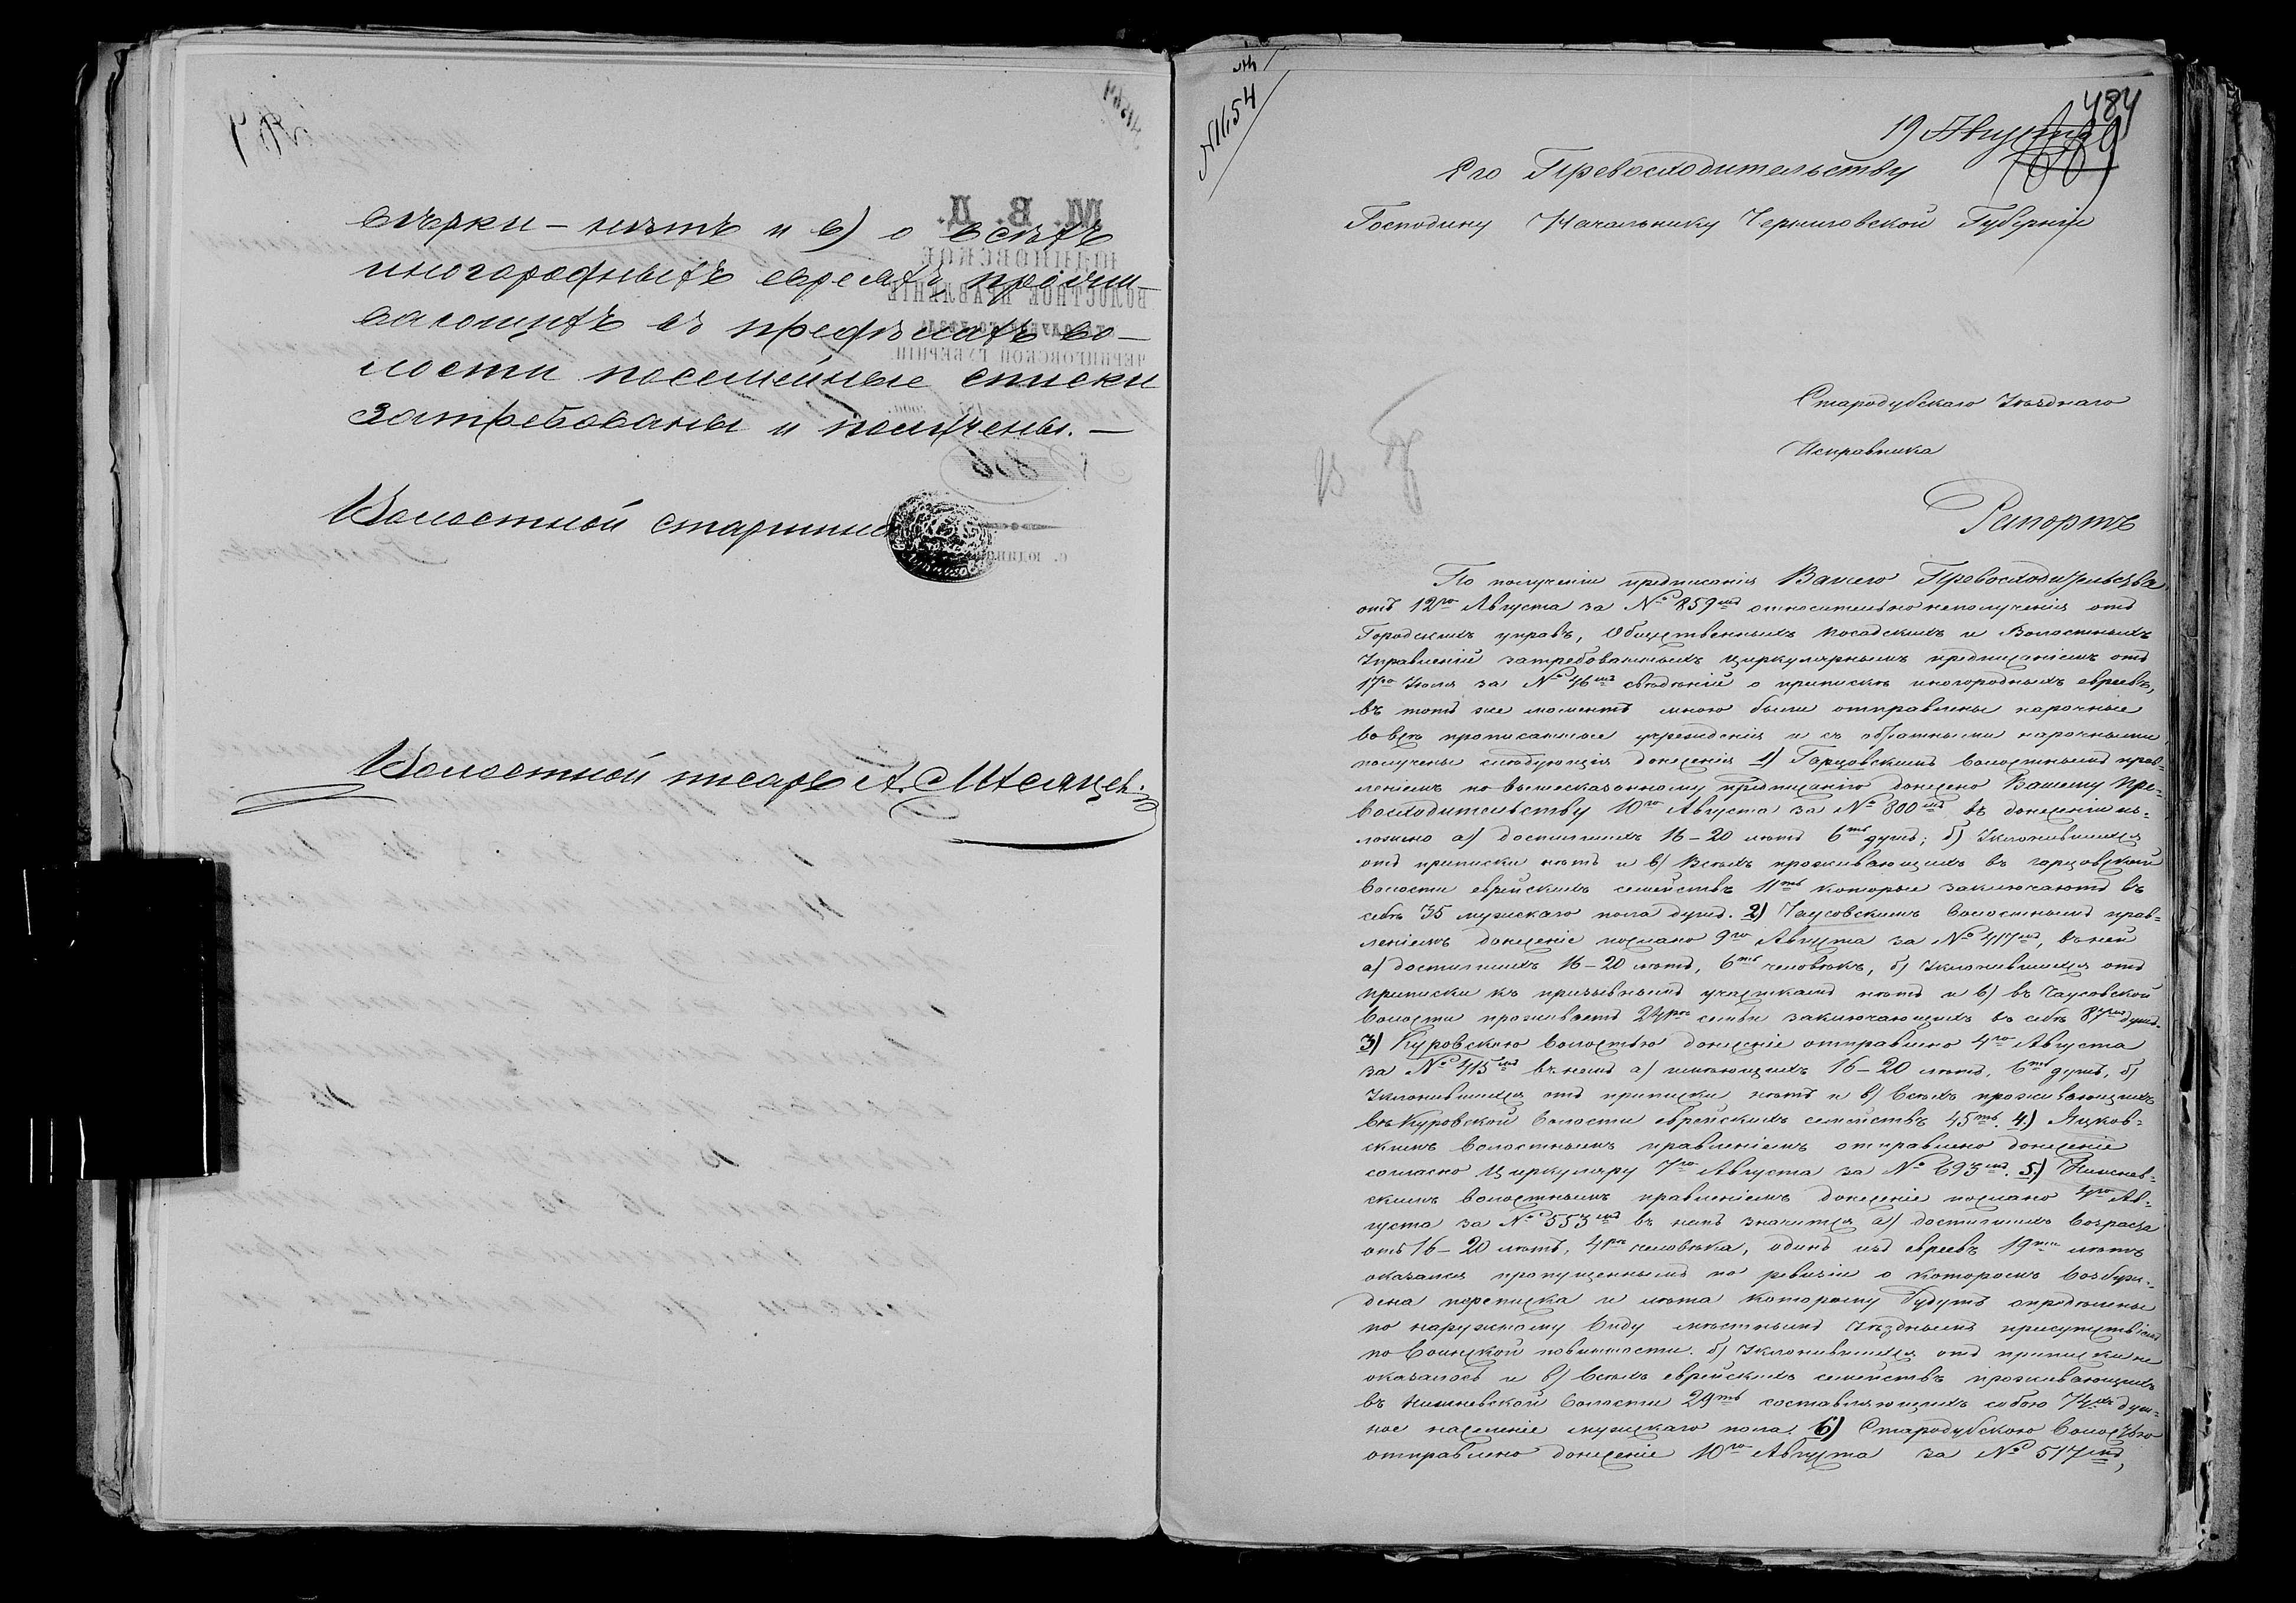 вѣрки – нѣтъ и в) о всѣхъ
иногородныхъ евреяхъ, прожи-
вающихъ въ предѣлахъ во-
лости посемейные списки
затребованы и получены. –
Волостной старшина
Волостной писарь А.
№1654
484
19 Августа
Его Превосходительству
Господину Начальнику Черниговской Губерніи
Стародубскаго Уѣзднаго
Исправника
Рапортъ
По полученіи предписанія Вашего Превосходительства
отъ 12го Августа за № 859мъ относительно неполученія отъ
Городскихъ управъ, Общественныхъ Посадскихъ и Волостныхъ
Управленій затребованныхъ циркулярнымъ предписаніемъ отъ
17го Іюля за № 46мъ свѣдѣній о припискѣ иногородныхъ евреевъ,
въ тотъ же моментъ мною были отправлены нарочные
во всѣ прописанные учрежденія и съ обратными нарочными
получены слѣдующія донесенія 1) Гарцовскимъ волостнымъ прав-
леніемъ по вышесказанному предписанію донесено Вашему Пре-
восходительству 10го Августа за № 300мъ въ донесеніи из-
ложено а) достигшихъ 16–20 лѣтъ 6ть душъ; б) Уклонившихся
отъ приписки нѣтъ и в) Всѣхъ проживающихъ въ гарцовской
волости еврейскихъ семействъ 11ть которые заключаютъ въ
себѣ 35 мужскаго пола душъ. 2) Чаусовскимъ Волостнымъ прав-
леніемъ донесеніе послано 9го Августа за № 417мъ, въ ней
а) достигшихъ 16–20 лѣтъ, 6ть человѣкъ, б) Уклонившихся отъ
приписки къ призывнымъ участкамъ нѣтъ и в) въ Чаусовской
волости проживаетъ 24ре семьи заключающихъ въ себѣ 87мь душъ.
3) Куровскою Волостью донесеніе отправлено 4го Августа
за № 415мъ въ немъ а) имѣющихъ 16–20 лѣтъ, 6ть душъ, б)
Уклонившихся отъ приписки нѣтъ и в) всѣхъ проживающихъ
въ Куровской Волости еврейскихъ семействъ 45ть. 4) Яцков-
скимъ Волостнымъ правленіемъ отправлено донесеніе
согласно Циркуляру 7го Августа за № 693мъ. 5)
скимъ волостнымъ правленіемъ донесеніе послано 4го Ав-
густа за № 553мъ въ немъ значится а) достигшихъ возраста
отъ 16–20 лѣтъ, 4ре человѣка, одинъ изъ евреевъ 19ти лѣтъ
оказался пропущеннымъ по ревизіи о которомъ возбуж-
дена переписка и лѣта которому будутъ опредѣлены
по наружному виду мѣстнымъ Уѣзднымъ присутствіемъ
по Воинской повинности. б) Уклонившихся отъ приписки не
оказалось и в) всѣхъ еврейскихъ семействъ проживающихъ
въ волости 29ть составляющихъ собою 74хъ душ-
ное населеніе мужскаго пола. 6) Стародубскою Волостью
отправлено донесеніе 10го Августа за № 517мъ,